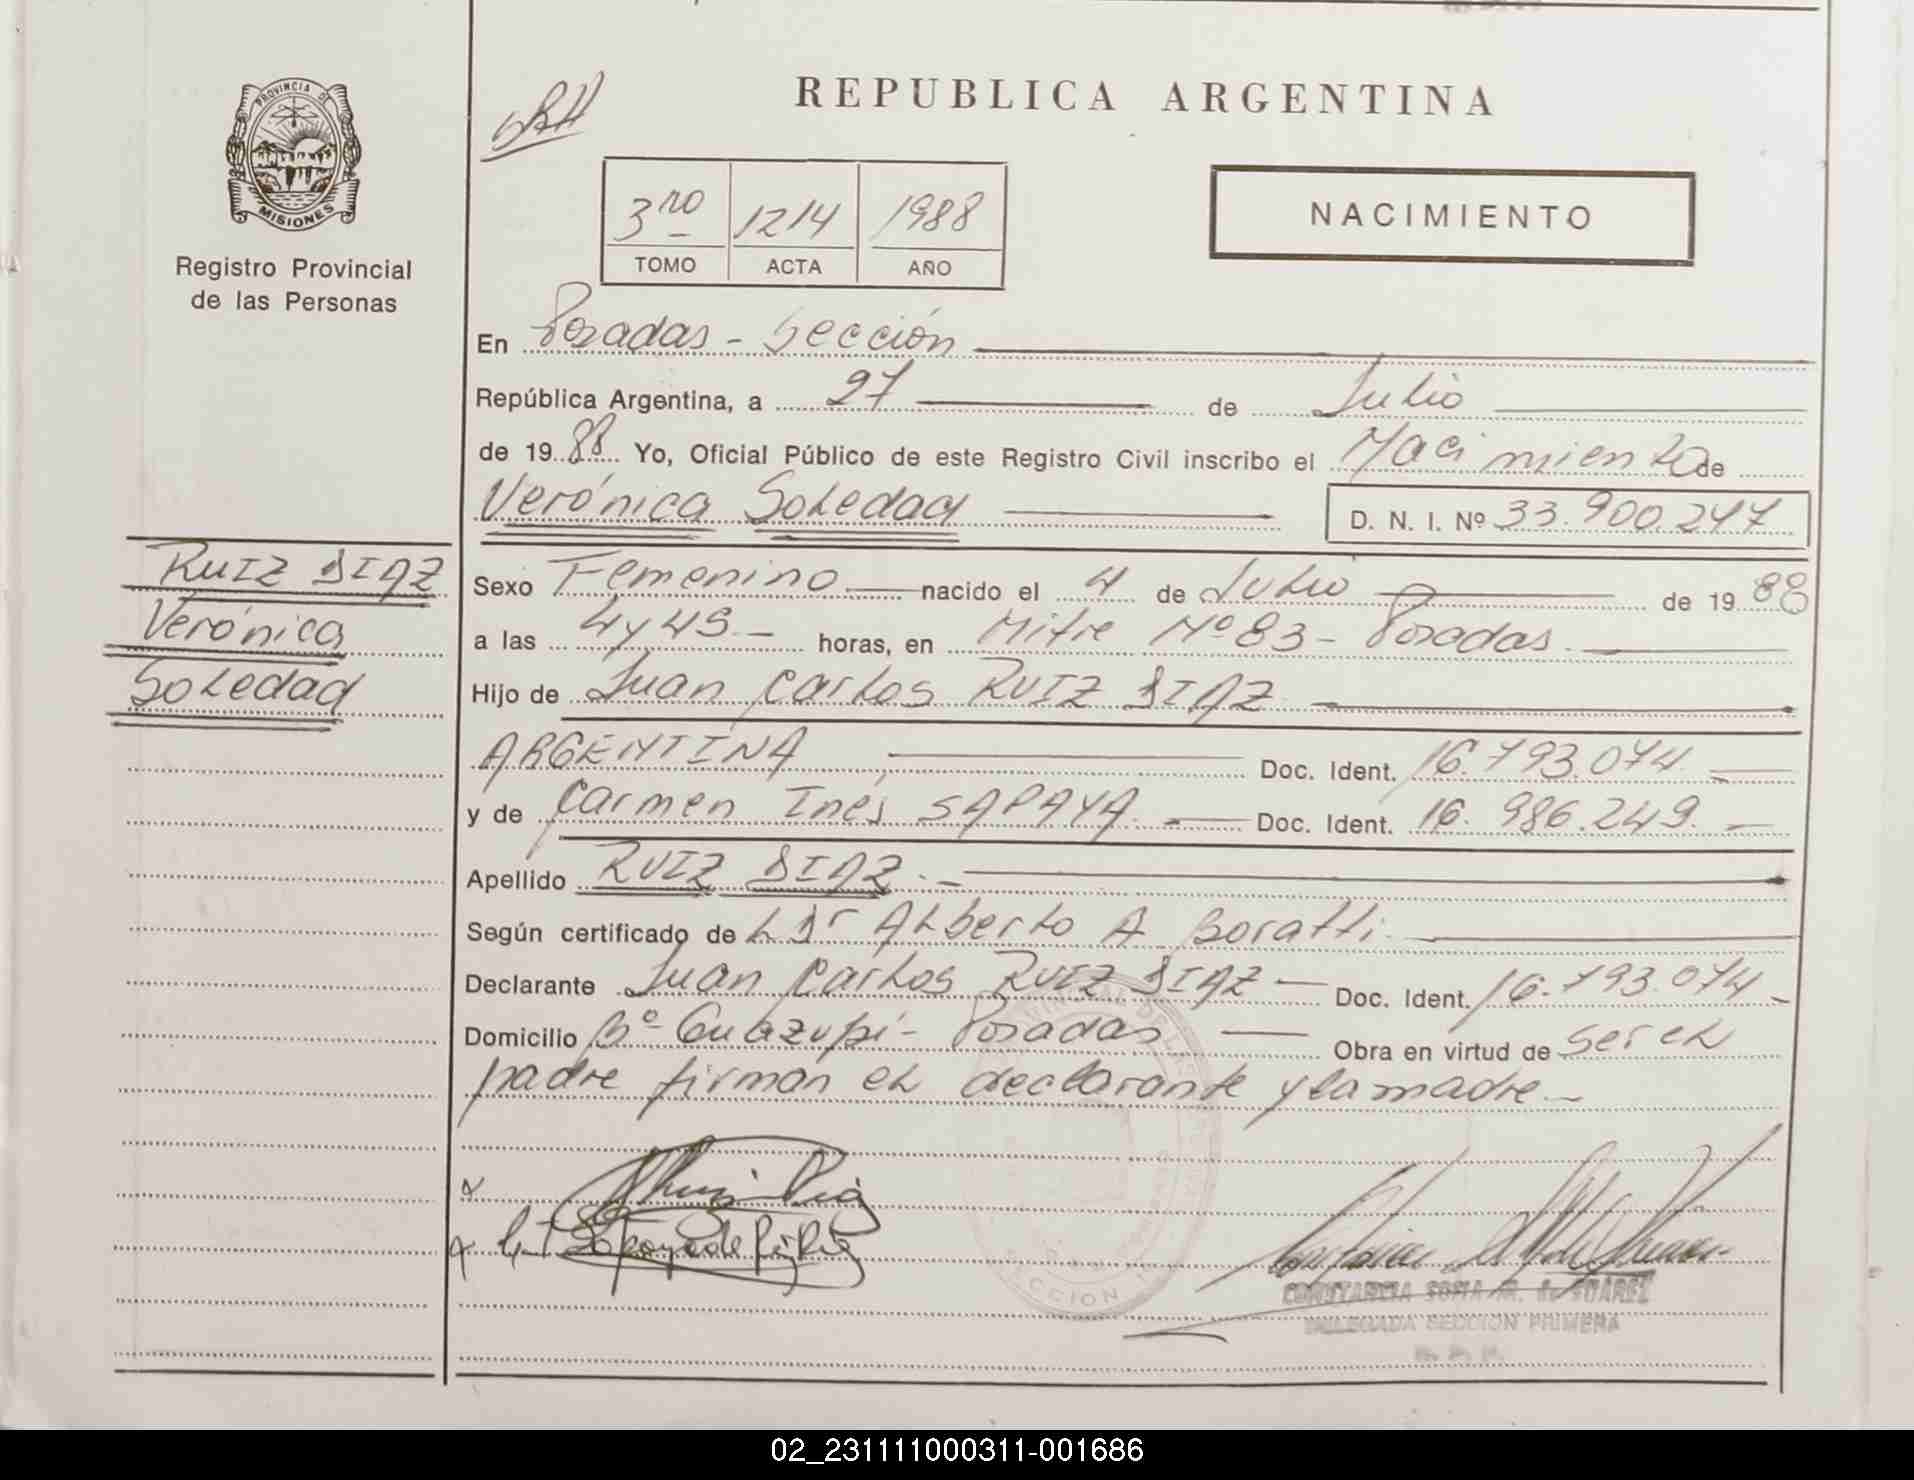 PROVINCIA DE
MISIONES
Registro Provincial
de las Personas
REPUBLICA ARGENTINA
3ro 1214 1988
TOMO ACTA AÑO
NACIMIENTO
En Posadas - Sección
República Argentina, a 27 de Julio
de 1988 Yo, Oficial Público de este Registro Civil inscribo el Nacimiento de
Verónica Soledad D. N. I. Nº 33.900.247
RUIZ DIAZ
Verónica
Soledad
Sexo Femenino nacido el 4 de Julio de 1988
a las 4 y 45 - horas, en Mitre Nº 83 - Posadas.
Hijo de Juan Carlos RUIZ DIAZ
ARGENTINA Doc. Ident. 16.793.074
y de Carmen Inés SAPAYA Doc. Ident. 16.986.249.
Apellido RUIZ DIAZ. -
Según certificado de L Dr Alberto A Boratti
Declarante Juan Carlos RUIZ DIAZ - Doc. Ident. 16.793.074 -
Domicilio Bº Guazupi - Posadas Obra en virtud de ser el
padre firman el declarante y la madre. -
CONSTANCIA SOFIA M. de SUAREZ
DELEGADA SECCION PRIMERA
02_231111000311-001686